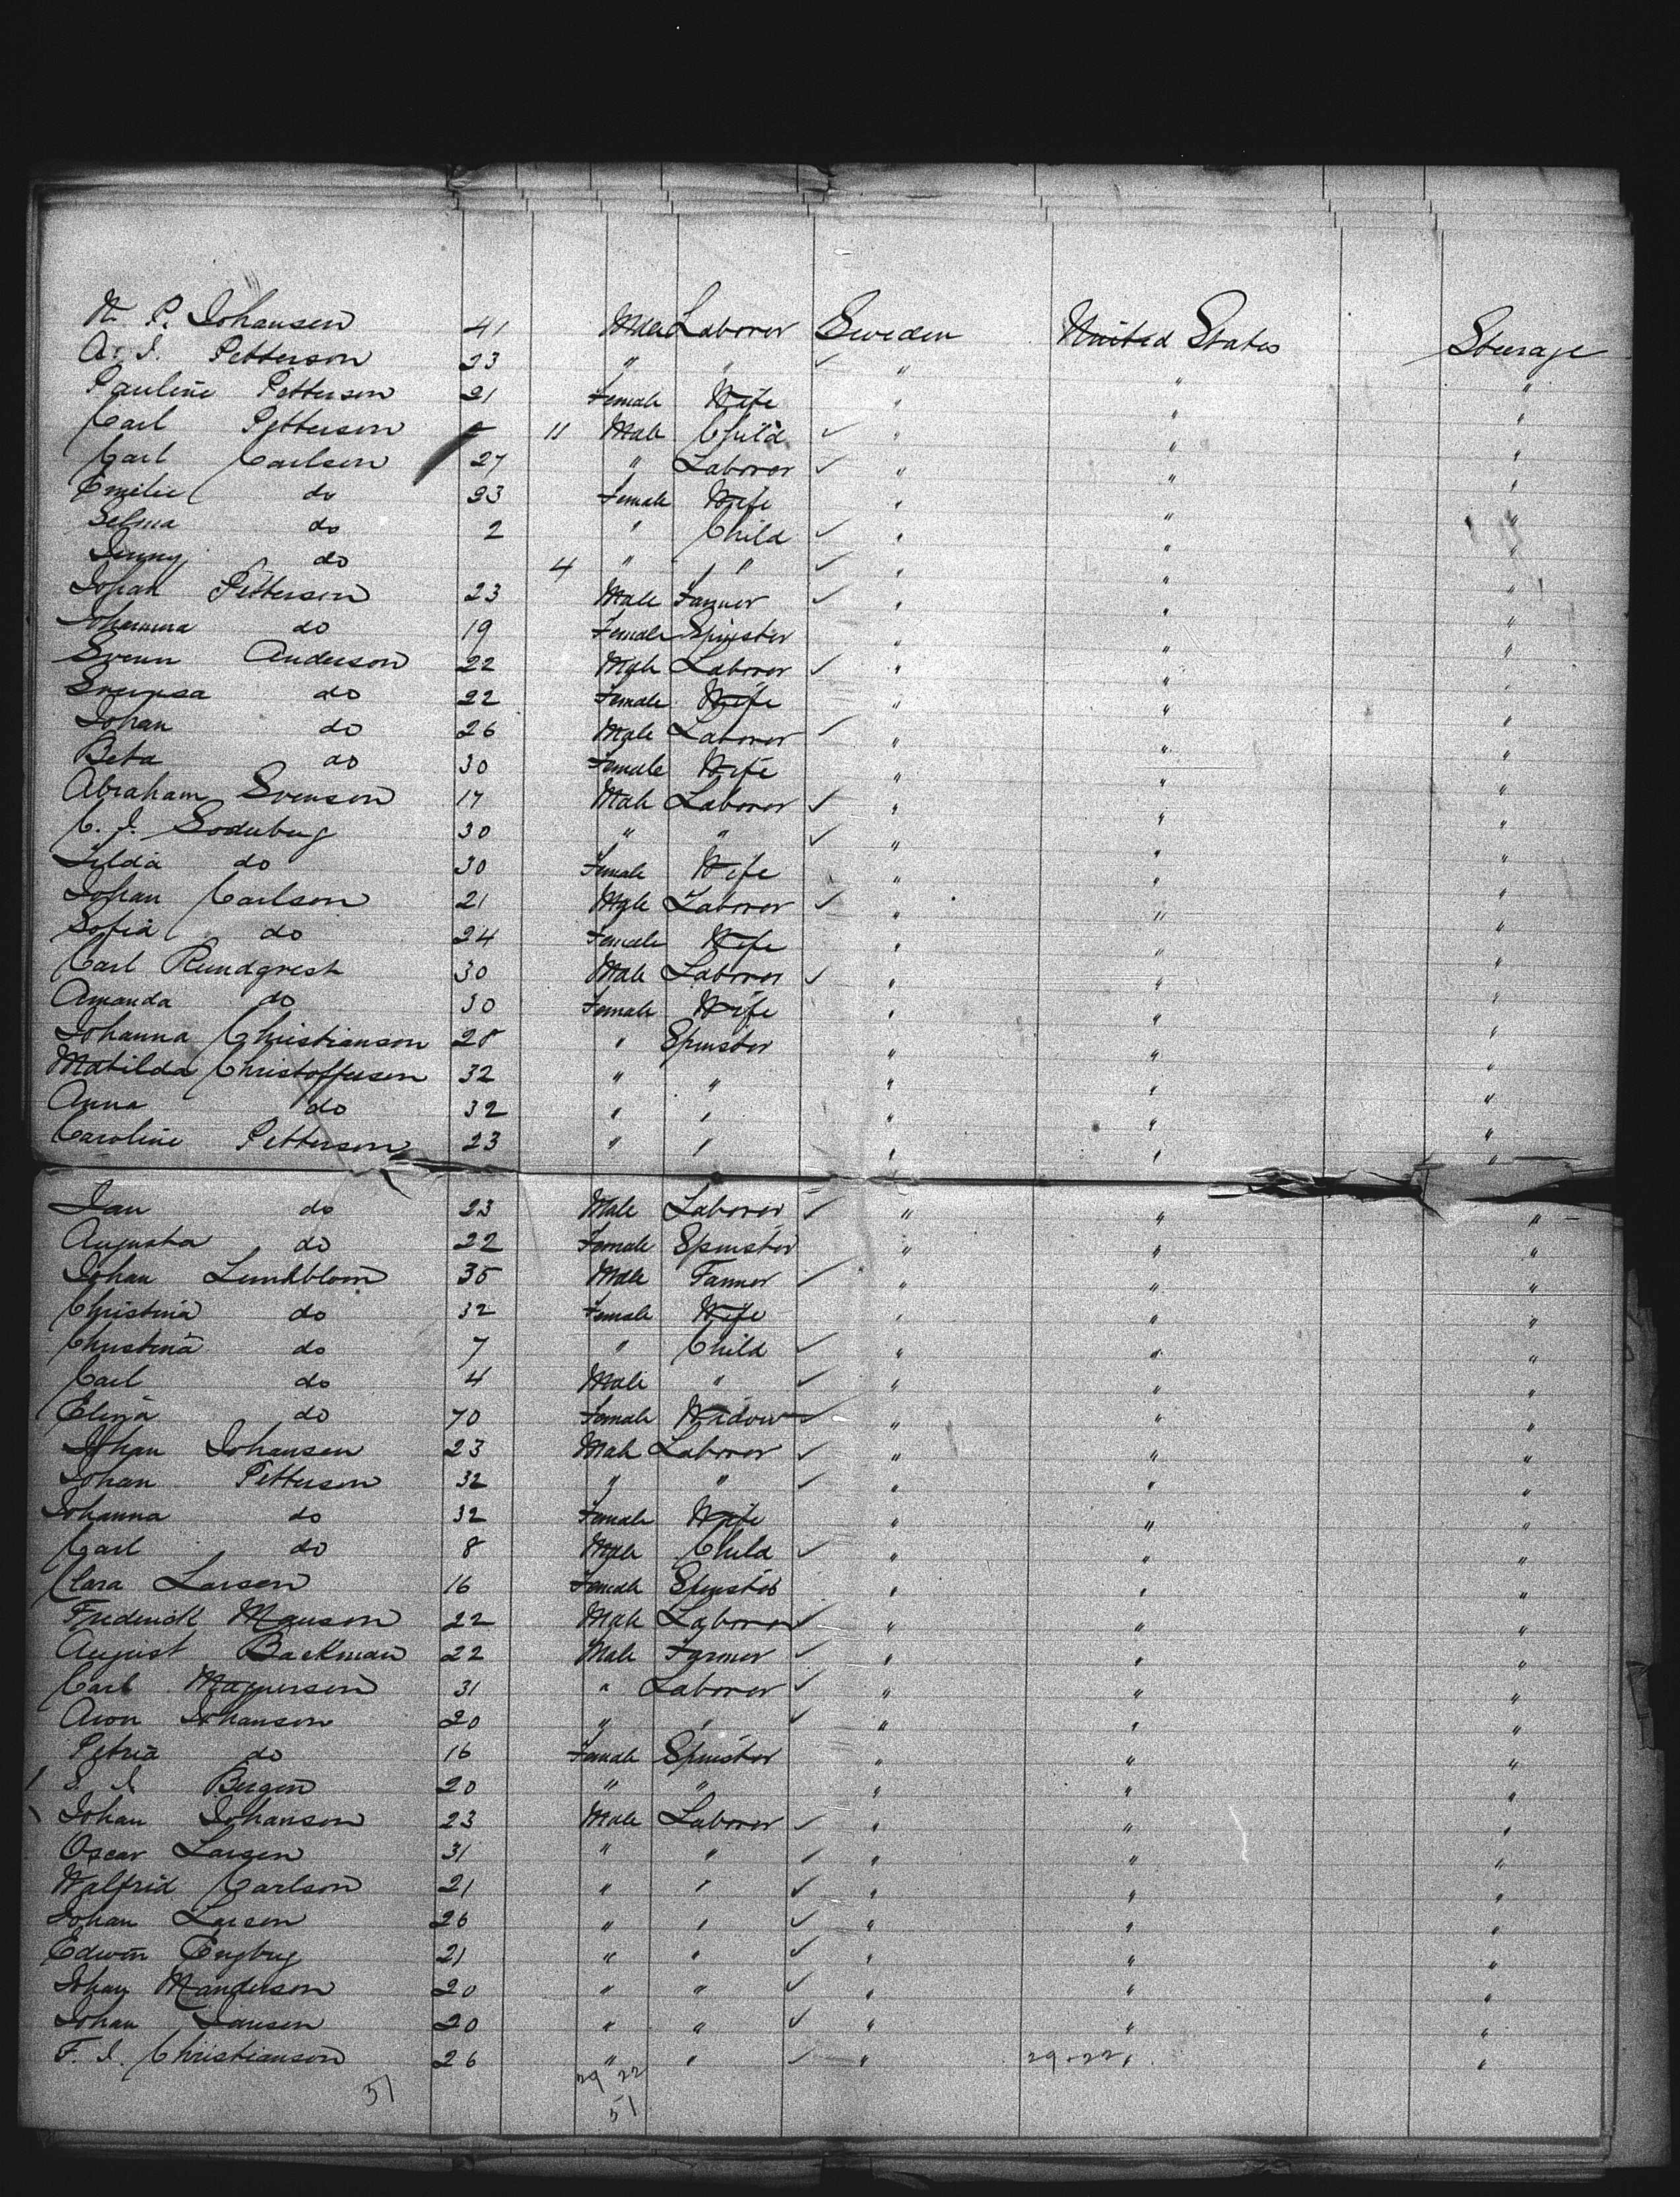 N. P. Johansen 41 Male Laborer Sweden United States Steerage
A. J. Petterson 23 " " ✓ " " "
Pauline Petterson 21 Female Wife " " "
Carl Petterson 11 Male Child ✓ " " "
Carl Carlson 27 " Laborer ✓ " " "
Emilie do 23 Female Wife " " "
Selma do 2 " Child ✓ " " "
Jenny do 4 " " ✓ " " "
Johan Petterson 23 Male Farmer ✓ " " "
Johanna do 19 Female Spinster " " "
Svenn Anderson 22 Male Laborer ✓ " " "
do 22 Female Wife " " "
Johan do 26 Male Laborer ✓ " " "
Beta do 30 Female Wife " " "
Abraham Svenson 17 Male Laborer ✓ " " "
C. J. Soderberg 30 " " ✓ " " "
do 30 Female Wife " " "
Johan Carlson 21 Male Laborer ✓ " " "
Sofia do 24 Female Wife " " "
Carl Rundqvest 30 Male Laborer ✓ " " "
Amanda do 30 Female Wife " " "
Johanna Christianson 28 " Spinster " " "
Matilda Christoffersen 32 " " " " "
Anna do 32 " " " " "
Caroline Petterson 23 " " " " "
Jan do 23 Male Laborer ✓ " " "
Augusta do 22 Female Spinster " " "
Johan Lundblom 35 Male Farmer ✓ " " "
Christina do 32 Female Wife " " "
Christina do 7 " Child ✓ " " "
Carl do 4 Male " ✓ " " "
do 70 Female Widow ✓ " " "
Johan Johansen 23 Male Laborer ✓ " " "
Johan Petterson 32 " " ✓ " " "
Johanna do 32 Female Wife " " "
Carl do 8 Male Child ✓ " " "
Clara Larsen 16 Female Spinster " " "
Frederick Manson 22 Male Laborer ✓ " " "
August Backman 22 Male Farmer ✓ " " "
Carl Magnerson 31 " Laborer ✓ " " "
Aron Johanson 20 " " ✓ " " "
Petria do 16 Female Spinster " " "
S. J. Bergen 20 " " " " "
Johan Johanson 23 Male Laborer ✓ " " "
Oscar Larsen 31 " " ✓ " " "
Walfrid Carlson 21 " " ✓ " " "
Johan Larsen 26 " " ✓ " " "
Edwin Engberg 21 " " ✓ " " "
Johan Manderson 20 " " ✓ " " "
Johan Jansen 20 " " ✓ " " "
F. J. Christianson 26 " " ✓ " 29 + 22 " "
51 29 22
51